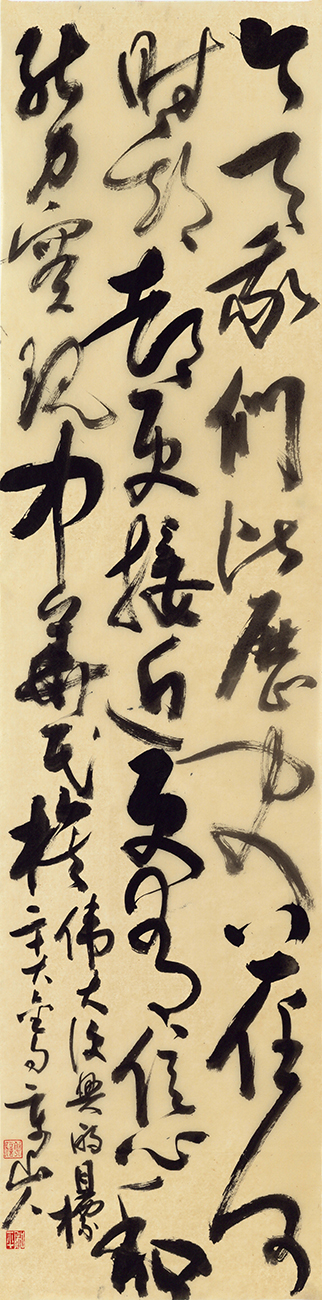 今天我們比歷史上任何
時期都更接近更有信心和
能力實現中華民族
偉大復興的目標